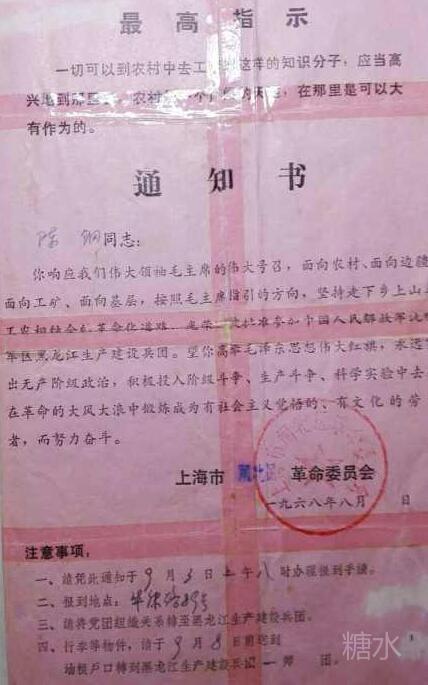 最高指示
一切可以到农村中去工作的这样的知识分子，应当高
兴地到那里去。农村是一个广阔的天地，在那里是可以大
有作为的。
通知书
陈钢同志：
你响应我们伟大领袖毛主席的伟大号召，面向农村、面向边疆
面向工矿、面向基层，按照毛主席指引的方向，坚持走下乡上山
工农相结合的革命化道路，光荣 批准参加中国人民解放军沈
军区黑龙江生产建设兵团。望你高举毛泽东思想伟大红旗，永远
出无产阶级政治，积极投入阶级斗争、生产斗争、科学实验中去
在革命的大风大浪中锻炼成为有社会主义觉悟的、有文化的劳
者，而努力奋斗。
上海市 革命委员会
一九六八年八月 日
注意事项：
一、请凭此通知于9月3日上午八时办理报到手续。
二、报到地点：
三、请将党团组织关系转至黑龙江生产建设兵团。
四、行李等物件，请于9月8日前送到
场报户口转到黑龙江生产建设兵团一师 团。
糖水